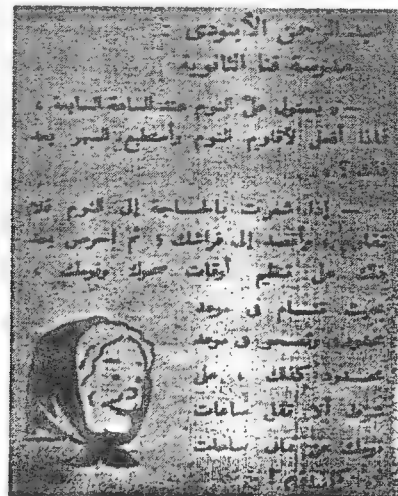 عبد الرحمن الأبنودى
مدرسة قنا الثانوية
— يستولى علىّ النوم عند الساعة السابعة ،
فماذا أفعل لأقاوم النوم وأستطيع السهر بعد
ذلك ؟
— إذا شعرت بالحاجة إلى النوم فلا
تقاوم ، واقصد إلى فراشك ، ثم احرص بعد
ذلك على تنظيم أوقات صحوك ونومك ،
بحيث تنام فى موعد
محدود وتصحو فى موعد
محدود كذلك ، على
شرط ألا تقل ساعات
نومك عن ثمان ساعات